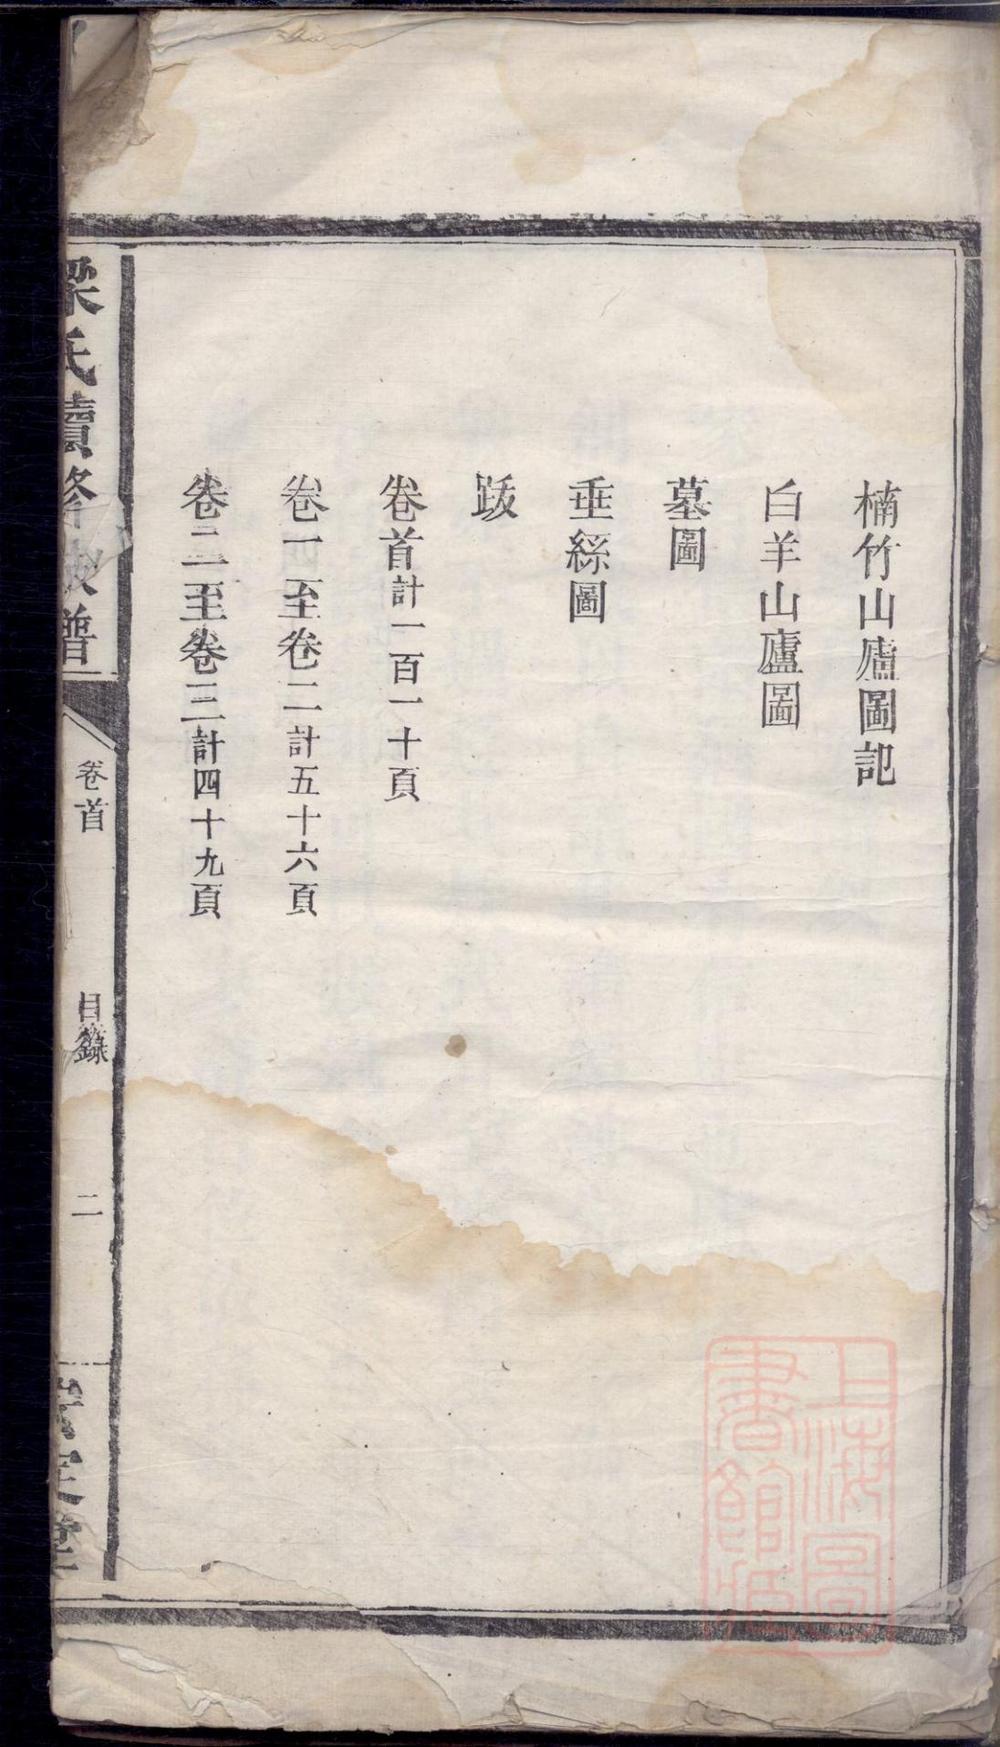 楠竹山廬圖記
白羊山廬圖
墓圖
垂絲圖
跋
卷首計一百一十頁
卷一至卷二計五十六頁
卷二至卷三計四十九頁
梁氏續修族譜
卷首
目錄
二
上海圖
書館藏